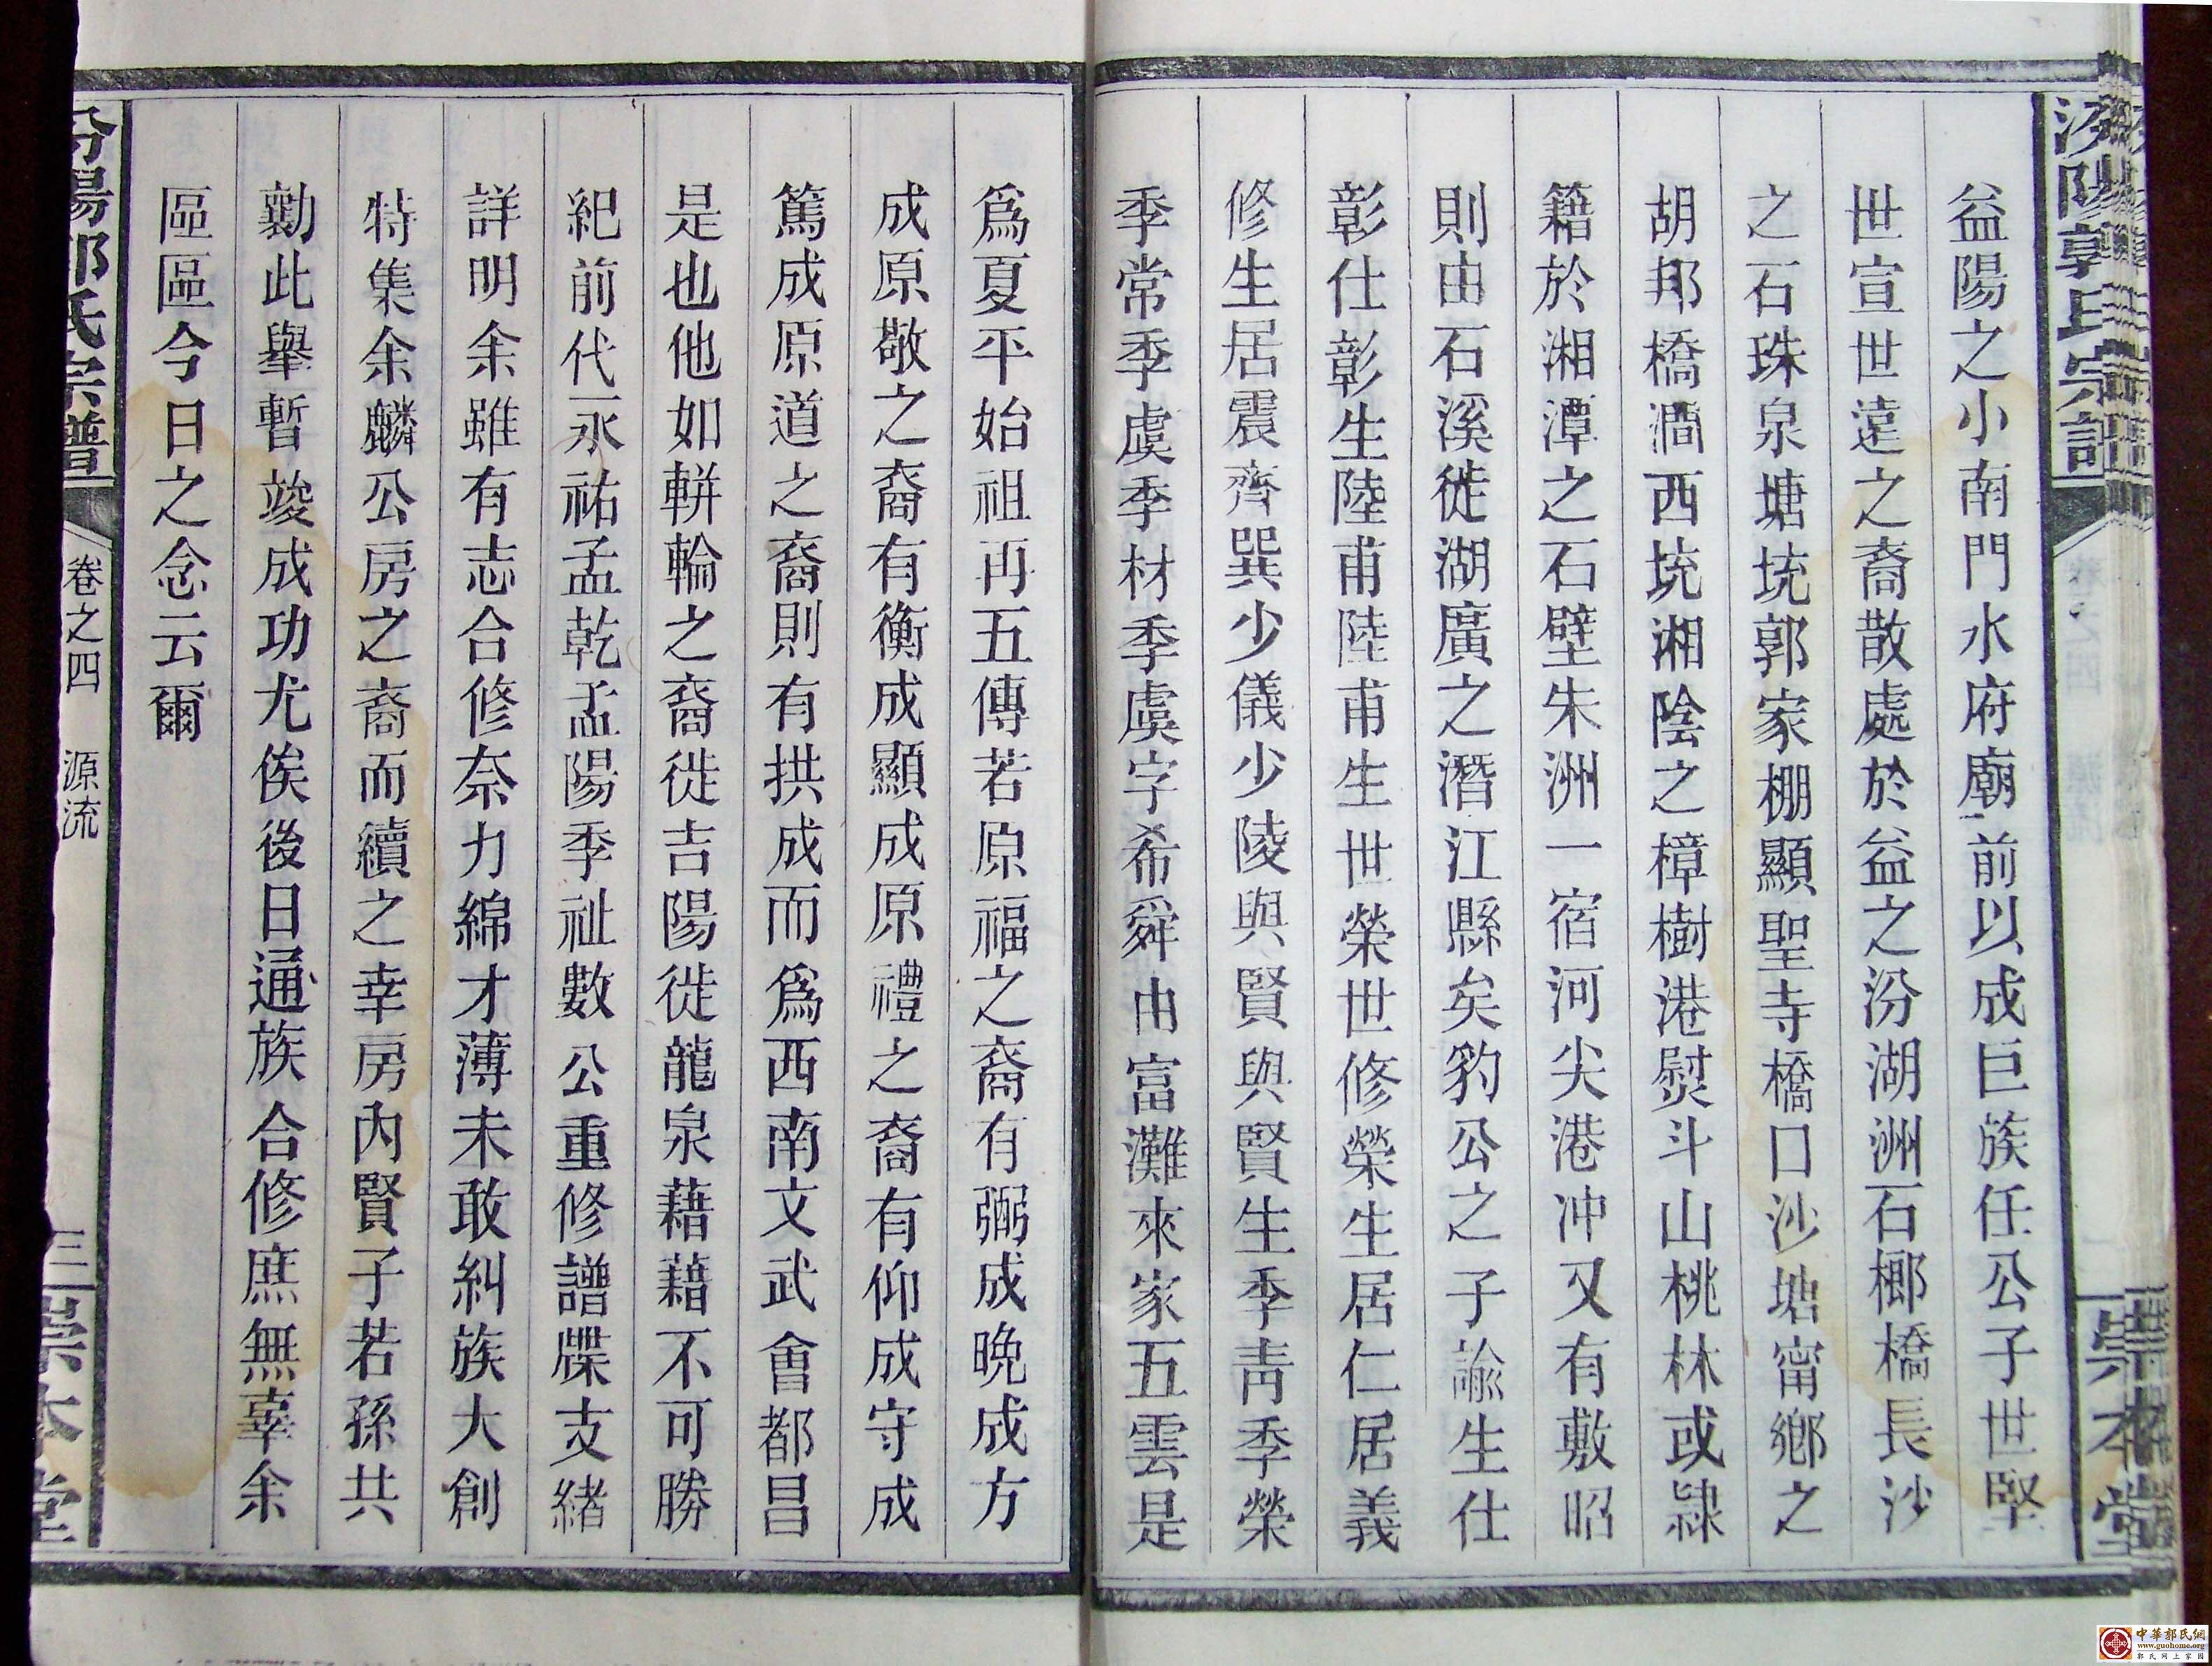 汾陽郭氏宗譜
崇本堂
益陽之小南門水府廟前以成巨族任公子世堅
世宣世遠之裔散處於益之汾湖洲石榔橋長沙
之石珠泉塘坑郭家棚顯聖寺橋口沙塘甯鄉之
胡邦橋澗西坑湘陰之樟樹港熨斗山桃林或隸
籍於湘潭之石壁朱洲一宿河尖港冲又有敷昭
則由石溪徙湖廣之潛江縣矣豹公之子諭生仕
彰仕彰生陸甫陸甫生世榮世修榮生居仁居義
修生居震齊巽少儀少陵與賢與賢生季靑季榮
季常季虞季材季虞字希舜由富灘來家五雲是
爲夏平始祖再五傳若原福之裔有弼成晚成方
成原敬之裔有衡成顯成原禮之裔有仰成守成
篤成原道之裔則有拱成而爲西南文武會都昌
是也他如軿輪之裔徙吉陽徙龍泉藉藉不可勝
紀前代永祐孟乾孟陽季祉數公重修譜牒支緒
詳明余雖有志合修奈力綿才薄未敢糾族大創
特集余麟公房之裔而續之幸房內賢子若孫共
勷此舉暫竣成功尤俟後日通族合修庶無辜余
區區今日之念云爾
汾陽郭氏宗譜
卷之四 源流
三
崇本堂
中華郭氏網
www.guohome.org
郭氏网上家园